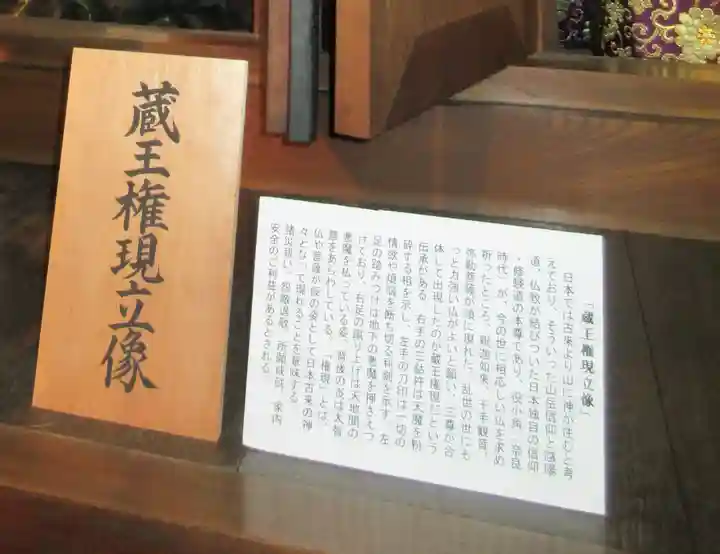 蔵王権現立像
「蔵王権現立像」
日本では古来より山に神が住むと考
えており、そういった山岳信仰と陰陽
道、仏教が結びついた日本独自の信仰
・修験道の本尊であり、役小角(奈良
時代)が、今の世に相応しい仏を求め
祈ったところ、釈迦如来、千手観音、
弥勒菩薩が順に現れた。乱世の世にも
っと力強い仏がよいと願い、三尊が合
体して出現したのが蔵王権現だという
伝承がある。右手の三鈷杵は天魔を粉
砕する相を示し、左手の刀印は一切の
情欲や煩悩を断ち切る利剣を示す。左
足の踏みつけは地下の悪魔を押さえつ
けており、右足の蹴り上げは天地間の
悪魔を払っている姿、背後の炎は大智
慧をあらわしている。「権現」とは、
仏や菩薩が仮の姿として日本古来の神
々となって現わることを意味する。
諸災祓い、怨敵退散、所願成就、家内
安全のご利益があるとされる。